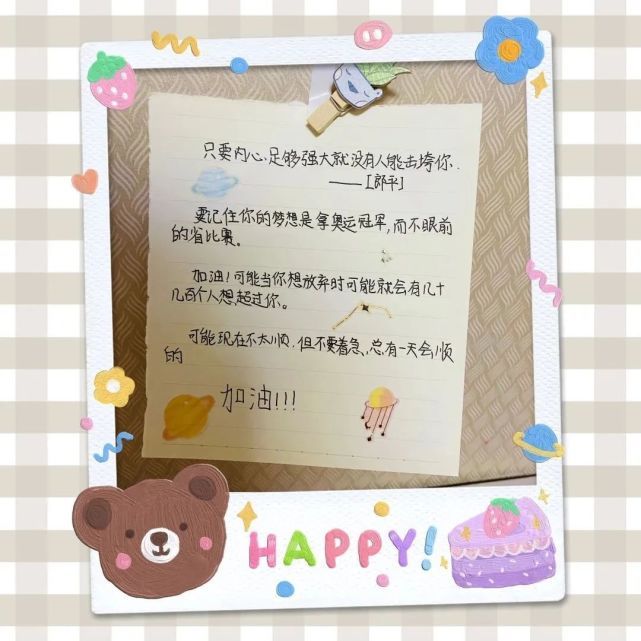 只要内心足够强大就没有人能击垮你.
——[郎平]
要记住你的梦想是拿奥运冠军,而不眼前
的省比赛。
加油!可能当你想放弃时可能就会有几十
几百个人想超过你。
可能现在不太顺.但不要着急,总有一天会顺
的
加油!!!
HAPPY!